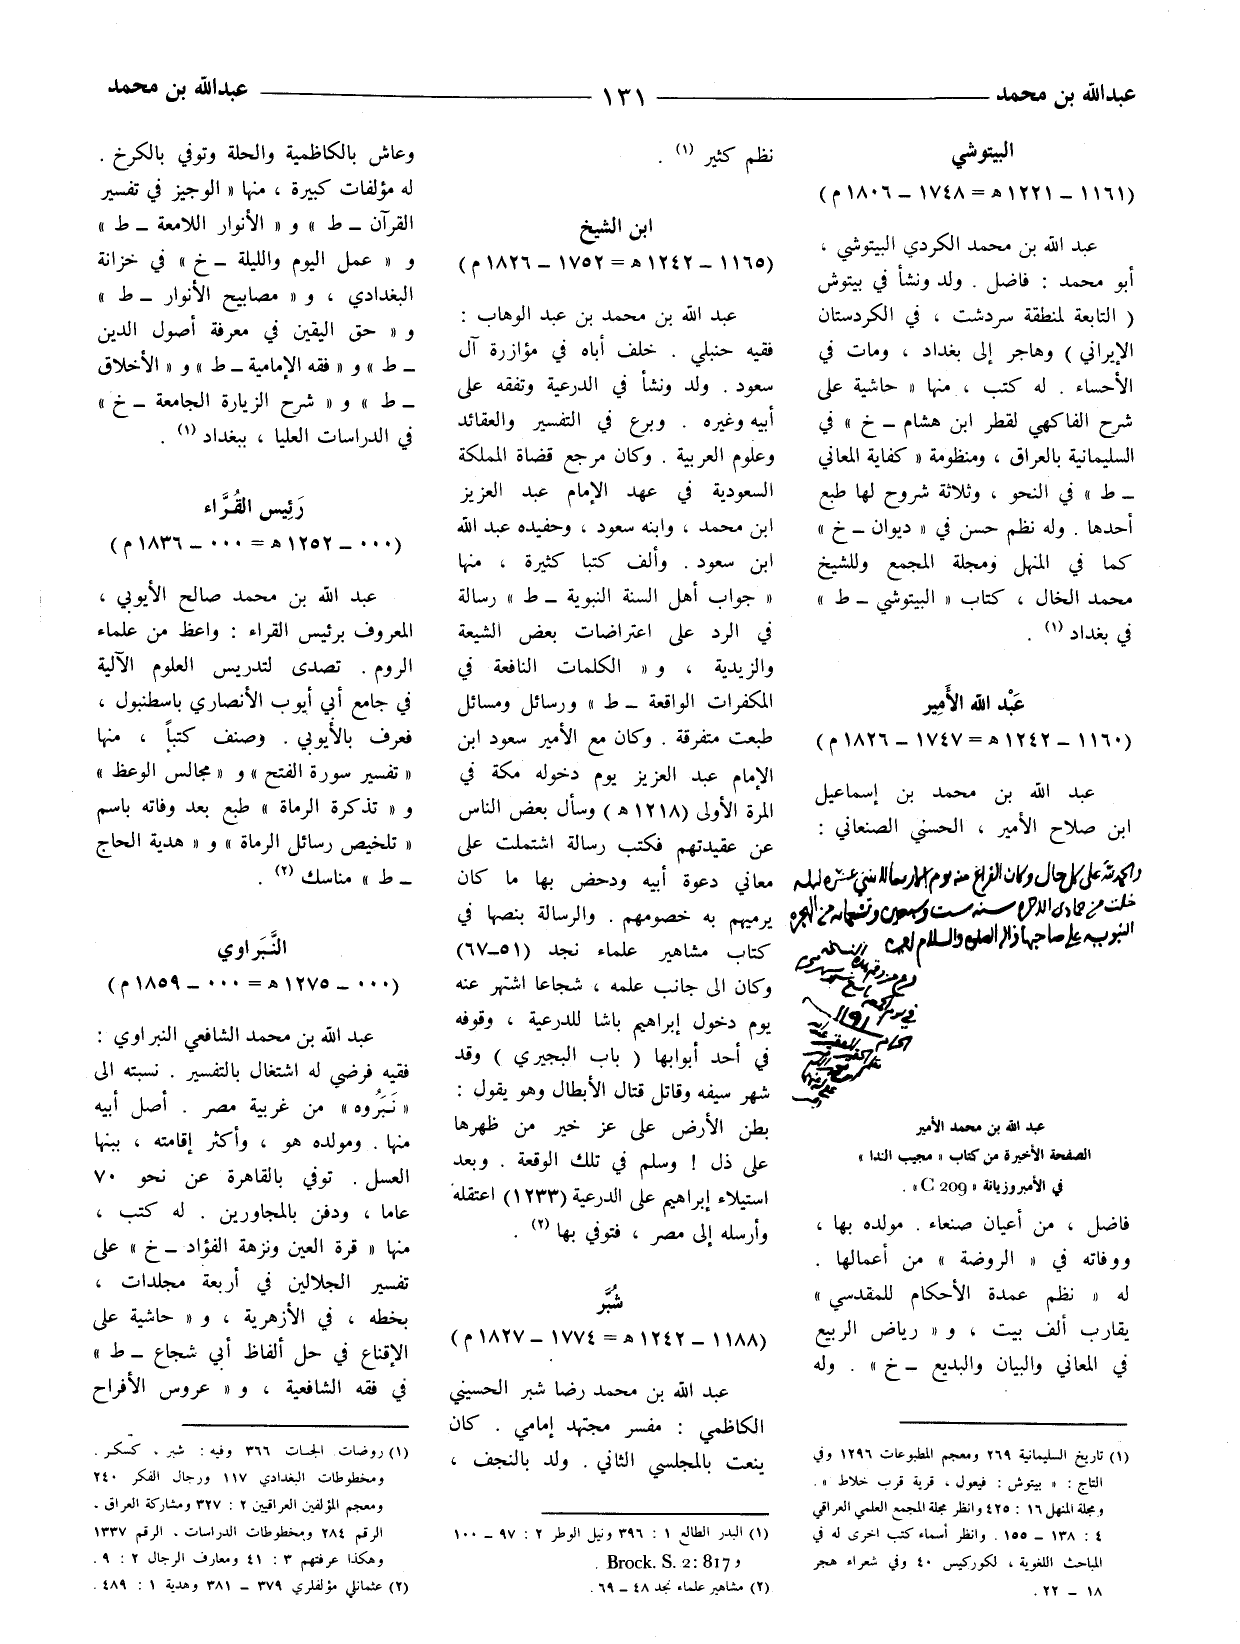 عبدالله بن محمد ــــ ١٣١ ــــ عبدالله بن محمد
البيتوشي
(١١٦١ ــ ١٢٢١ ه = ١٧٤٨ ــ ١٨٠٦ م)
عبد الله بن محمد الكردي البيتوشي ،
أبو محمد : فاضل . ولد ونشأ في بيتوش
( التابعة لمنطقة سردشت ، في الكردستان
الإيراني ) وهاجر إلى بغداد ، ومات في
الأحساء . له كتب ، منها « حاشية على
شرح الفاكهي لقطر ابن هشام ــ خ » في
السليمانية بالعراق ، ومنظومة « كفاية المعاني
ــ ط » في النحو ، وثلاثة شروح لها طبع
أحدها . وله نظم حسن في « ديوان ــ خ »
كما في المنهل ومجلة المجمع وللشيخ
محمد الخال ، كتاب « البيتوشي ــ ط »
في بغداد (١) .
عَبْد الله الأَمِير
(١١٦٠ ــ ١٢٤٢ ه = ١٧٤٧ ــ ١٨٢٦ م)
عبد الله بن محمد بن إسماعيل
ابن صلاح الأمير ، الحسني الصنعاني :
والحمد لله على كل حال وكان الفراغ منه يوم الاربعا لاثنتي عشره ليله
خلت من جمادى الاخره سنه ست وسبعين وتسعمائه من الهجره
النبويه على صاحبها
١١٩١
عبد الله بن محمد الأمير
الصفحة الأخيرة من كتاب « مجيب الندا »
في الأمبروزيانة «C 209» .
فاضل ، من أعيان صنعاء . مولده بها ،
ووفاته في « الروضة » من أعمالها .
له « نظم عمدة الأحكام للمقدسي »
يقارب ألف بيت ، و « رياض الربيع
في المعاني والبيان والبديع ــ خ » . وله
(١) تاريخ السليمانية ٢٦٩ ومعجم المطبوعات ١٢٩٦ وفي
التاج : « بيتوش : فيعول ، قرية قرب خلاط » .
ومجلة المنهل ١٦ : ٤٢٥ وانظر مجلة المجمع العلمي العراقي
٤ : ١٣٨ ــ ١٥٥ . وانظر أسماء كتب اخرى له في
المباحث اللغوية ، لكوركيس ٤٠ وفي شعراء هجر
١٨ ــ ٢٢ .
نظم كثير (١) .
ابن الشيخ
(١١٦٥ ــ ١٢٤٢ ه = ١٧٥٢ ــ ١٨٢٦ م)
عبد الله بن محمد بن عبد الوهاب :
فقيه حنبلي . خلف أباه في مؤازرة آل
سعود . ولد ونشأ في الدرعية وتفقه على
أبيه وغيره . وبرع في التفسير والعقائد
وعلوم العربية . وكان مرجع قضاة المملكة
السعودية في عهد الإمام عبد العزيز
ابن محمد ، وابنه سعود ، وحفيده عبد الله
ابن سعود . وألف كتبا كثيرة ، منها
« جواب أهل السنة النبوية ــ ط » رسالة
في الرد على اعتراضات بعض الشيعة
والزيدية ، و « الكلمات النافعة في
المكفرات الواقعة ــ ط » ورسائل ومسائل
طبعت متفرقة . وكان مع الأمير سعود ابن
الإمام عبد العزيز يوم دخوله مكة في
المرة الأولى (١٢١٨ ه ) وسأل بعض الناس
عن عقيدتهم فكتب رسالة اشتملت على
معاني دعوة أبيه ودحض بها ما كان
يرميهم به خصومهم . والرسالة بنصها في
كتاب مشاهير علماء نجد (٥١ــ٦٧)
وكان الى جانب علمه ، شجاعا اشتهر عنه
يوم دخول إبراهيم باشا للدرعية ، وقوفه
في أحد أبوابها ( باب البجيري ) وقد
شهر سيفه وقاتل قتال الأبطال وهو يقول :
بطن الأرض على عز خير من ظهرها
على ذل ! وسلم في تلك الوقعة . وبعد
استيلاء إبراهيم على الدرعية (١٢٣٣) اعتقله
وأرسله إلى مصر ، فتوفي بها (٢) .
شُبَّر
(١١٨٨ ــ ١٢٤٢ ه = ١٧٧٤ ــ ١٨٢٧ م)
عبد الله بن محمد رضا شبر الحسيني
الكاظمي : مفسر مجتهد إمامي . كان
ينعت بالمجلسي الثاني . ولد بالنجف ،
(١) البدر الطالع ١ : ٣٩٦ ونيل الوطر ٢ : ٩٧ ــ ١٠٠
و Brock. S. 2: 817 .
(٢) مشاهير علماء نجد ٤٨ ــ ٦٩ .
وعاش بالكاظمية والحلة وتوفي بالكرخ .
له مؤلفات كبيرة ، منها « الوجيز في تفسير
القرآن ــ ط » و « الأنوار اللامعة ــ ط »
و « عمل اليوم والليلة ــ خ » في خزانة
البغدادي ، و « مصابيح الأنوار ــ ط »
و « حق اليقين في معرفة أصول الدين
ــ ط » و « فقه الإمامية ــ ط » و « الأخلاق
ــ ط » و « شرح الزيارة الجامعة ــ خ »
في الدراسات العليا ، ببغداد (١) .
رَئِيس القُرَّاء
(٠٠٠ ــ ١٢٥٢ ه = ٠٠٠ ــ ١٨٣٦ م)
عبد الله بن محمد صالح الأيوبي ،
المعروف برئيس القراء : واعظ من علماء
الروم . تصدى لتدريس العلوم الآلية
في جامع أبي أيوب الأنصاري باسطنبول ،
فعرف بالأيوبي . وصنف كتباً ، منها
« تفسير سورة الفتح » و « مجالس الوعظ »
و « تذكرة الرماة » طبع بعد وفاته باسم
« تلخيص رسائل الرماة » و « هدية الحاج
ــ ط » مناسك (٢) .
النَّبراوي
(٠٠٠ ــ ١٢٧٥ ه = ٠٠٠ ــ ١٨٥٩ م)
عبد الله بن محمد الشافعي النبراوي :
فقيه فرضي له اشتغال بالتفسير . نسبته الى
« نَبَرُوه » من غربية مصر . أصل أبيه
منها . ومولده هو ، وأكثر إقامته ، ببنها
العسل . توفي بالقاهرة عن نحو ٧٠
عاما ، ودفن بالمجاورين . له كتب ،
منها « قرة العين ونزهة الفؤاد ــ خ » على
تفسير الجلالين في أربعة مجلدات ،
بخطه ، في الأزهرية ، و « حاشية على
الإقناع في حل ألفاظ أبي شجاع ــ ط »
في فقه الشافعية ، و « عروس الأفراح
(١) روضات الجنات ٣٦٦ وفيه : شبر ، كسكر .
ومخطوطات البغدادي ١١٧ ورجال الفكر ٢٤٠
ومعجم المؤلفين العراقيين ٢ : ٣٢٧ ومشاركة العراق ،
الرقم ٢٨٤ ومخطوطات الدراسات ، الرقم ١٣٣٧
وهكذا عرفتهم ٣ : ٤١ ومعارف الرجال ٢ : ٩ .
(٢) عثمانلي مؤلفلري ٣٧٩ ــ ٣٨١ وهدية ١ : ٤٨٩ .